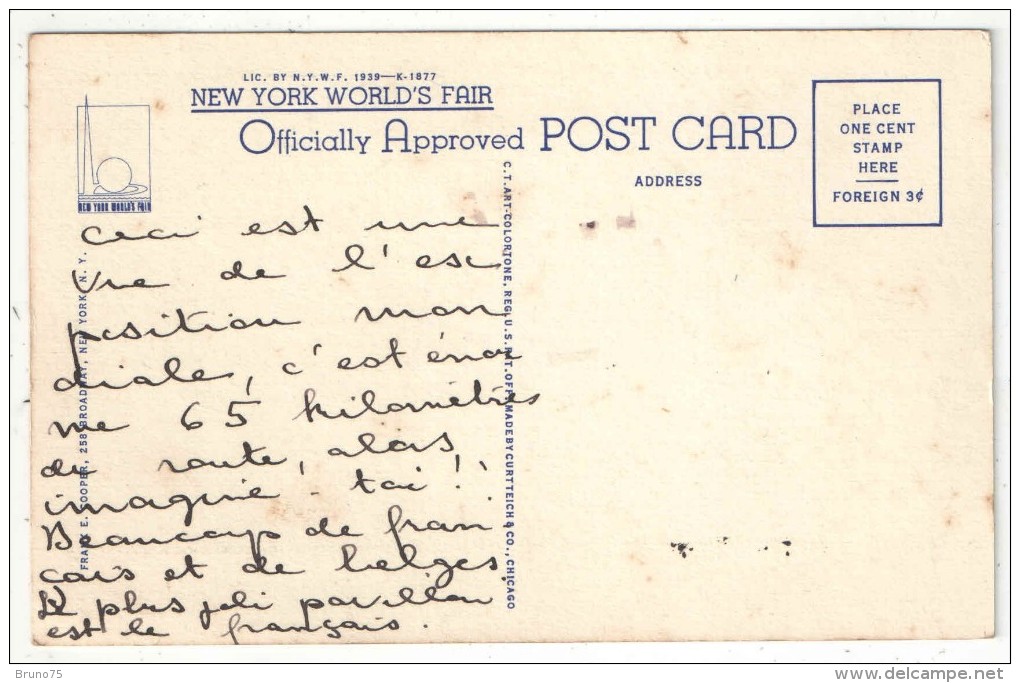 LIC. BY N.Y.W.F. 1939—K-1877
NEW YORK WORLD'S FAIR
Officially Approved POST CARD
ADDRESS
PLACE
ONE CENT
STAMP
HERE
FOREIGN 3¢
NEW YORK WORLD'S FAIR
ceci est une
vue de l'ex
position mon
diale, c'est énor
me 65 kilomètres
de route, alors
imagine-toi!!
Beaucoup de fran
cais et de belges.
Le plus joli pavillon
est le français.
FRANK E. COOPER, 258 BROADWAY, NEW YORK, N. Y.
C.T.ART-COLORTONE, REG. U.S. PAT. OFF. MADE BY CURT TEICH & CO., CHICAGO
Bruno75
delcampe.net